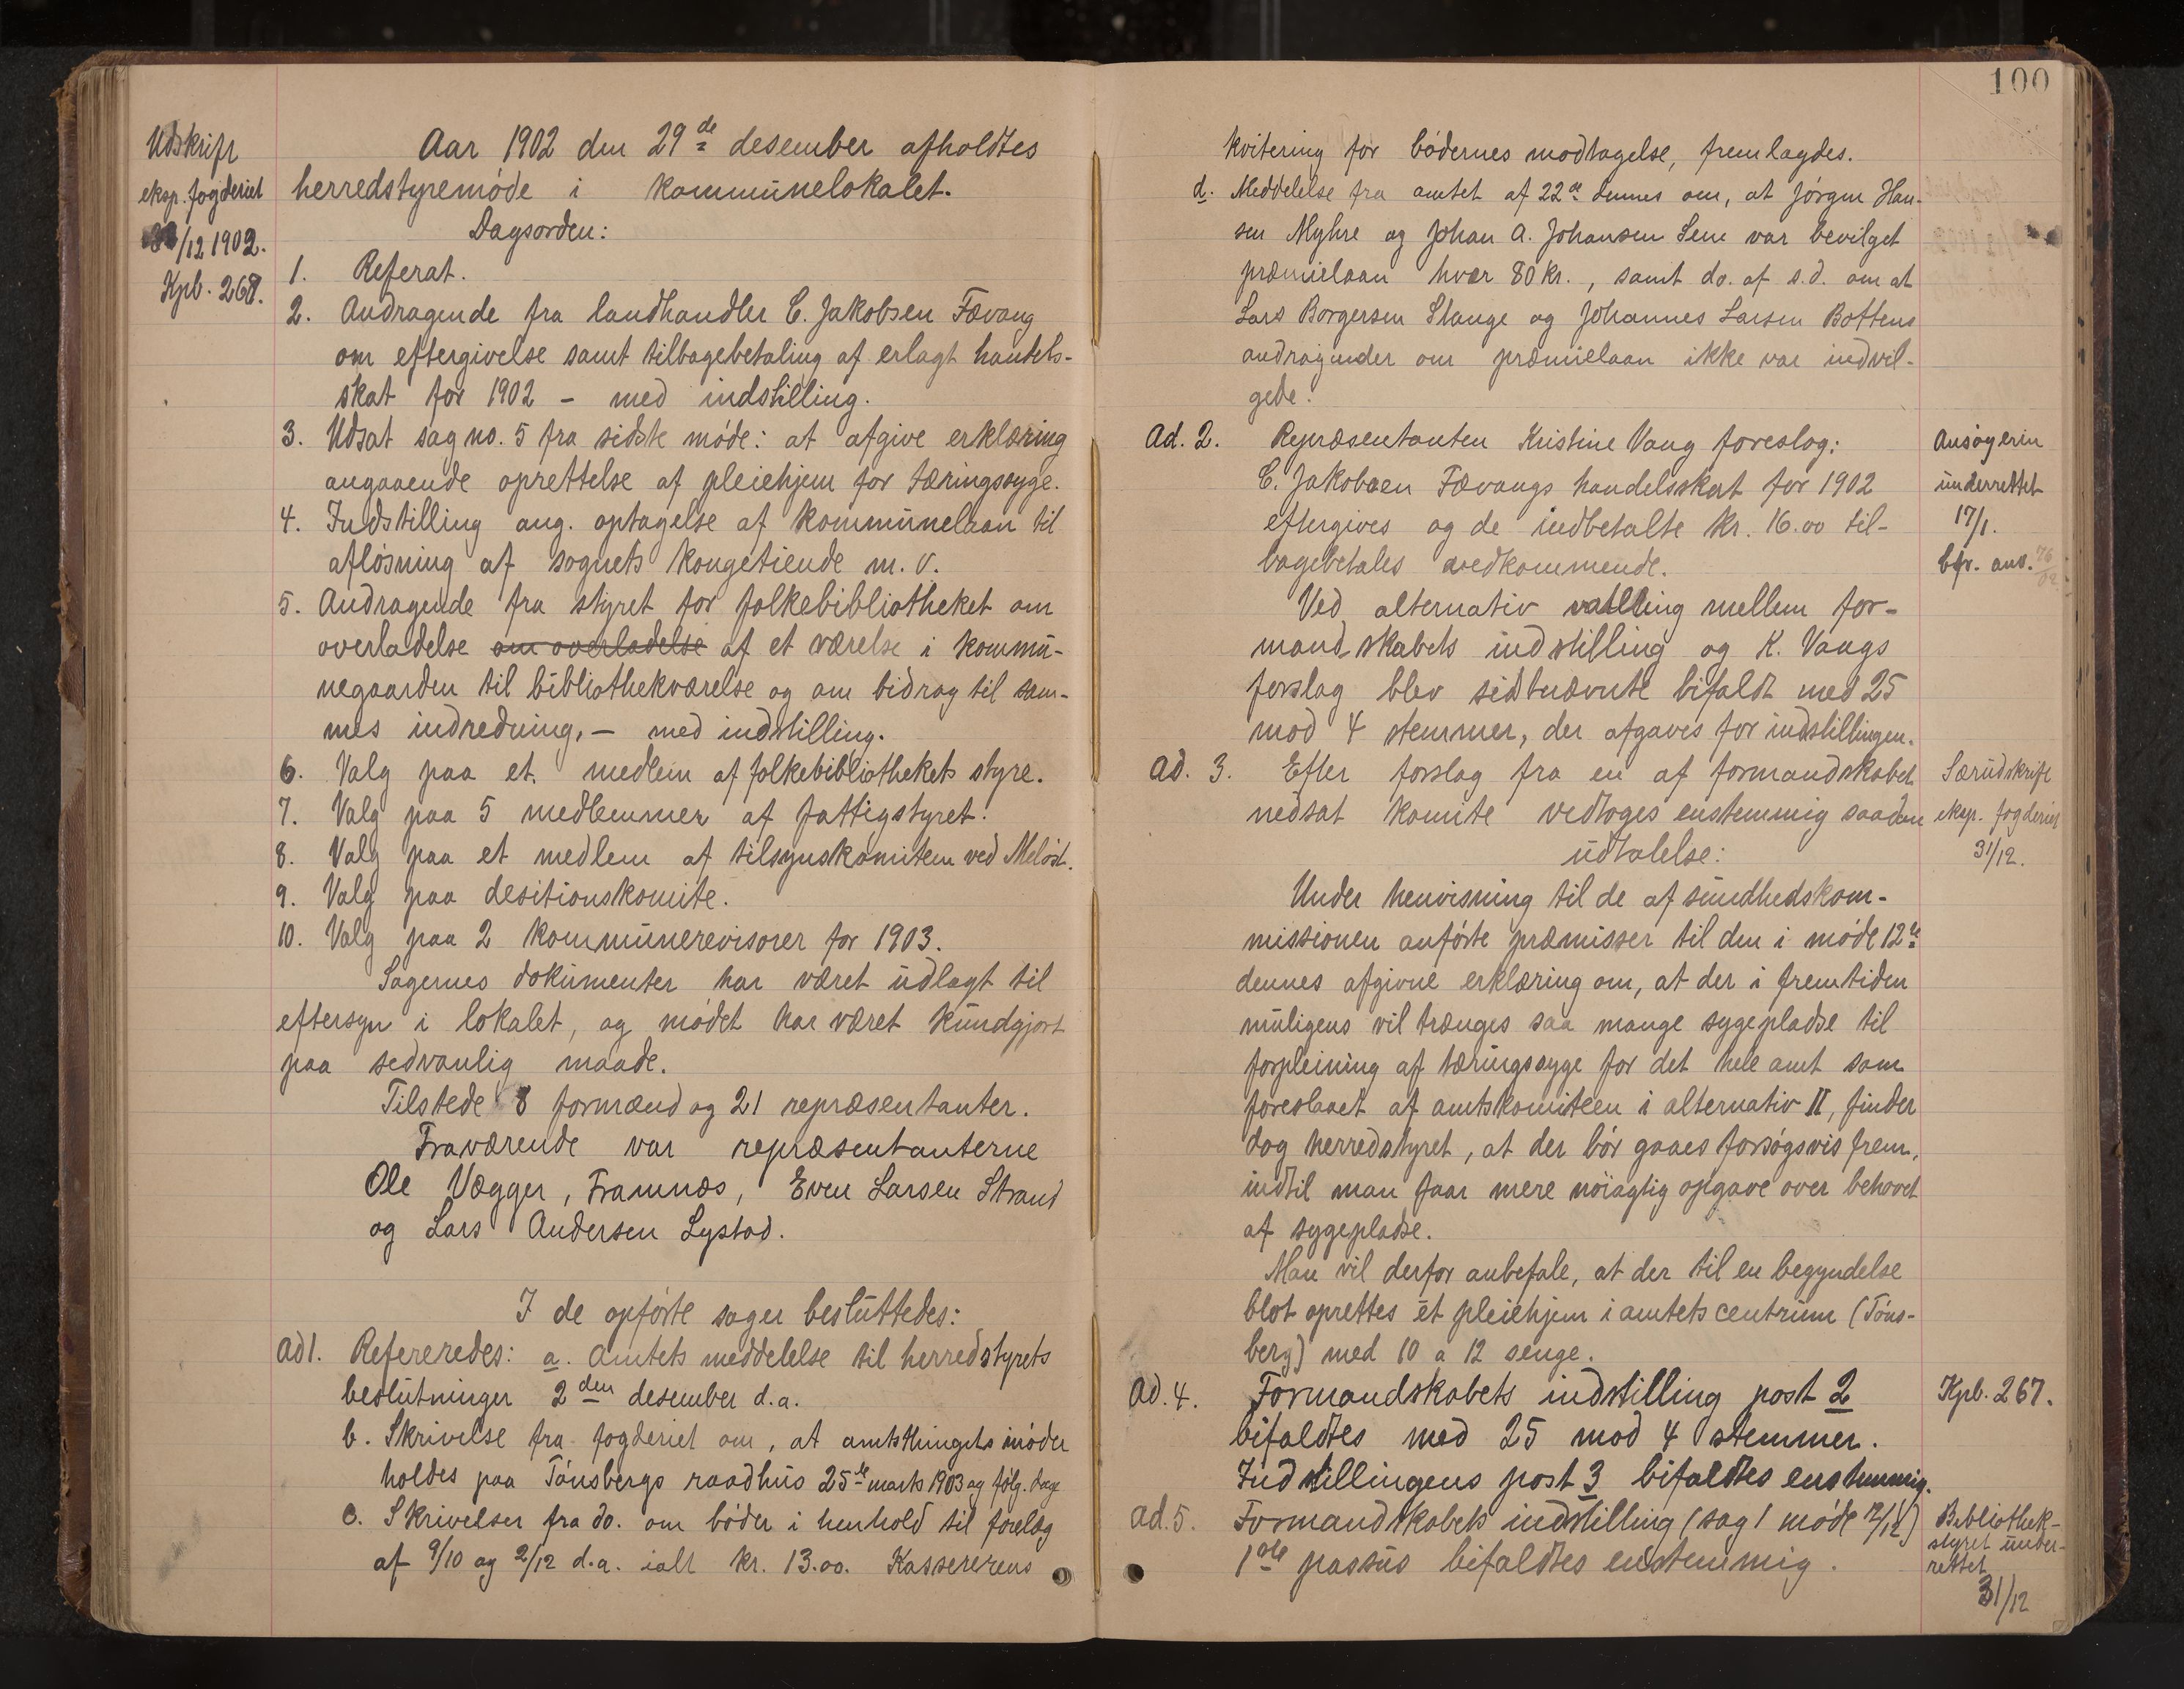 Udskrift
eksp. fogderiet
/12 1902.
Kpb. 268.
Aar 1902 den 29de desember afholdtes
herredstyremøde i kommunelokalet.
Dagsorden:
1. Referat.
2. Andragende fra landhandler C. Jakobsen Fævang
om eftergivelse samt tilbagebetaling af erlagt handels-
skat for 1902 – med indstilling.
3. Udsat sag no. 5 fra sidste møde: at afgive erklæring
angaaende oprettelse af pleiehjem for tæringssyge.
4. Indstilling ang. optagelse af kommunelaan til
afløsning af sognets kongetiende m. v.
5. Andragende fra styret for folkebibliotheket om
overladelse om overladelse af et værelse i kommu-
negaarden til bibliothekværelse og om bidrag til sam-
mes indredning, – med indstilling.
6. Valg paa et medlem af folkebibliothekets styre.
7. Valg paa 5 medlemmer af fattigstyret.
8. Valg paa et medlem af tilsynskomiteen ved Meløst.
9. Valg paa desitionskomite.
10. Valg paa 2 kommunerevisorer for 1903.
Sagernes dokumenter har været udlagt til
eftersyn i lokalet, og mødet har været kundgjort
paa sedvanlig maade.
Tilstede 8 formænd og 21 repræsentanter.
Fraværende var repræsentanterne
Ole Vegger, Framnæs, Even Larsen Strand
og Lars Andersen Lystad.
I de opførte sager besluttedes:
ad 1. Refereredes: a. Amtets meddelelse til herredstyrets
beslutninger 2den desember d.a.
b. Skrivelse fra fogderiet om, at amtsthingets møder
holdes paa Tønsbergs raadhus 25de marts 1903 og følg. dage
c. Skrivelser fra do. om bøder i henhold til forelæg
af 9/10 og 2/12 d.a. ialt kr. 13.00. Kassererens
100
kvitering for bødernes modtagelse, fremlagdes.
d. Meddelelse fra amtet af 22de dennes om, at Jørgen Han-
sen Myhre og Johan A. Johansen Sem var bevilget
præmielaan hver 80 kr., samt do. af s.d. om at
Lars Borgersen Stange og Johannes Larsen Bottens
andragender om præmielaan ikke var indvil-
gede.
Ad. 2. Repræsentanten Kristine Vang foreslog:
C. Jakobsen Fævangs handelsskat for 1902
eftergives og de indbetalte kr. 16.00 til-
bagebetales vedkommende.
Ved alternativ votering mellem for-
mandskabets indstilling og K. Vangs
forslag blev sidstnævnte bifaldt med 25
mod 4 stemmer, der afgaves for indstillingen.
Ansøgerin
underrettet
17/1.
bfr. anv. 76/02
ad. 3. Efter forslag fra en af formandskabet
nedsat komite vedtoges enstemmig saadan
udtalelse:
Særudskrift
eksp. fogderiet
31/12.
Under henvisning til de af sundhedskom-
missionen anførte præmisser til den i møde 12te
dennes afgivne erklæring om, at der i fremtiden
muligens vil trænges saa mange sygepladse til
forpleining af tæringssyge for det hele amt som
foreslaaet af amtskomiteen i alternativ II, finder
dog herredstyret, at der bør gaaes forsøgsvis frem,
indtil man faar mere nøiagtig opgave over behovet
af sygepladse.
Man vil derfor anbefale, at der til en begyndelse
blot oprettes et pleiehjem i amtets centrum (Tøns-
berg) med 10 a 12 senge.
ad. 4. Formandskabets indstilling post 2
bifaldtes med 25 mod 4 stemmer.
Indstillingens post 3 bifaldtes enstemmig.
Kpb. 267.
ad. 5. Formandskabets indstilling (sag 1 møde 12/12)
1ste passus bifaldtes enstemmig.
Bibliothek-
styret under-
rettet
31/12